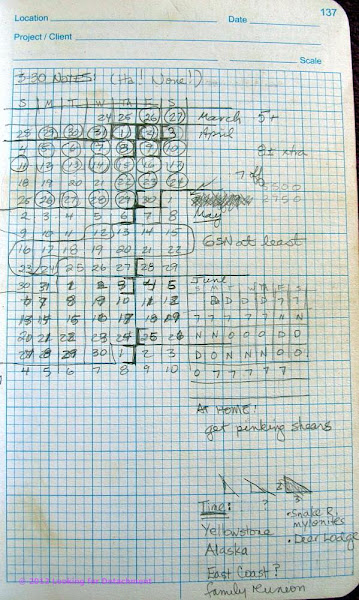 137
Location Date
Project / Client
Scale
3-30 NOTES! (Ha! None!)
S M T W Th F S
24 25 26 27 March 5+
28 29 30 31 1 2 3 April
4 5 6 7 8 9 10 8±
11 12 13 14 15 16 17
18 19 20 21 22 23 24 7 off
25 26 27 28 29 30 1 2750
2 3 4 5 6 7 8 May
9 10 11 12 13 14 15 65N at least
16 17 18 19 20 21 22
23 24 25 26 27 28 29
30 31 1 2 3 4 5 June
S M T W Th F S
6 7 8 9 10 11 12 D D D D 7 7
13 14 15 16 17 18 19 7 7 7 7 7 N N
20 21 22 23 24 25 26 N N O O O D O
27 28 29 30 1 2 3 D O N N N O O
4 5 6 7 8 9 10 O 7 7 7 7 7
At HOME!
get pinking shears
2
? 3
Time:
Yellowstone
Alaska
East Coast?
family reunion
• Snake R. mylonites
• Deer Lodge
© 2012 Looking for Detachment